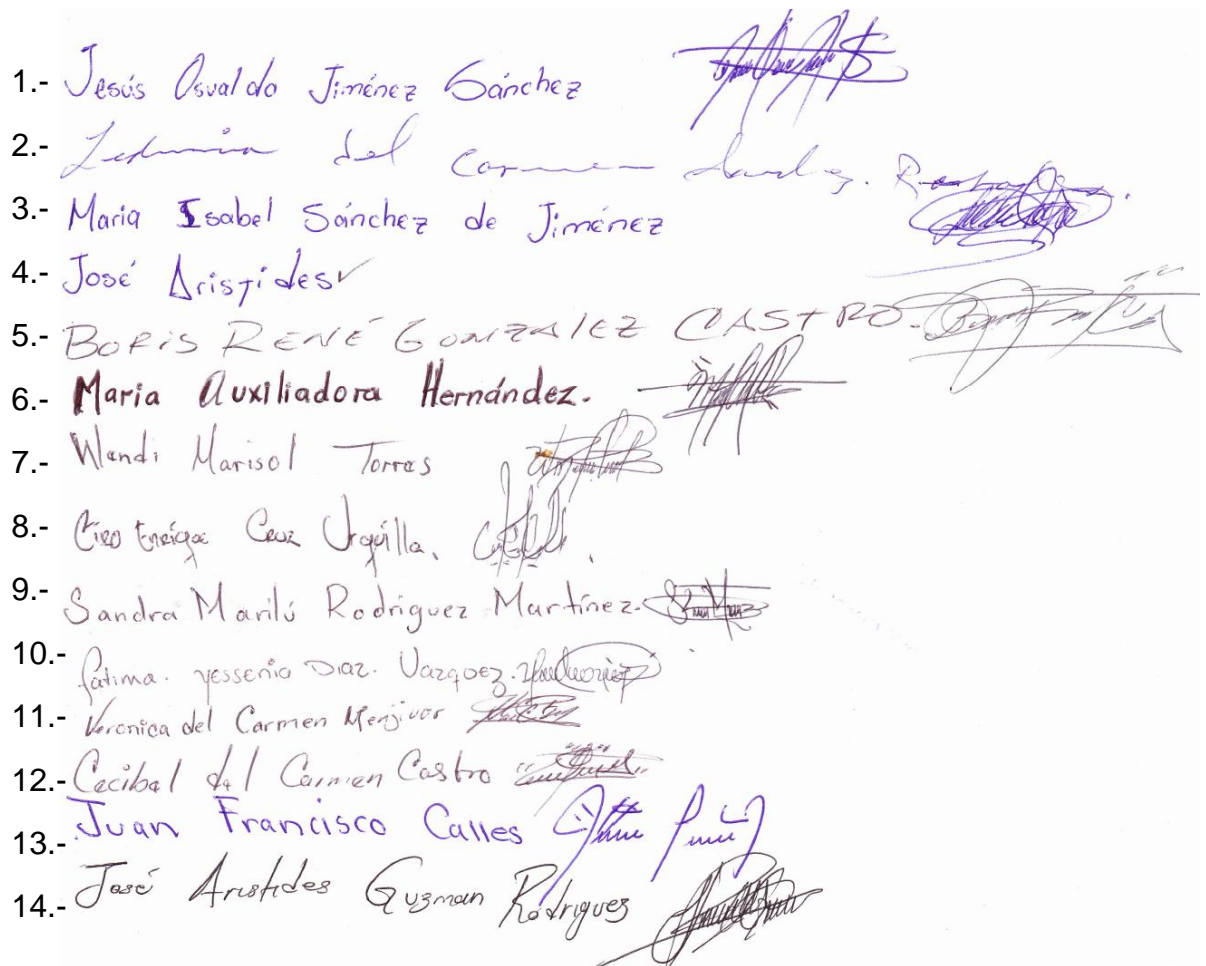 1.- Jesús Osvaldo Jiménez Sánchez
2.- del Carmen
3.- Maria Isabel Sánchez de Jiménez
4.- José Aristides
5.- BORIS RENÉ GONZALEZ CASTRO.
6.- Maria Auxiliadora Hernández.
7.- Wendi Marisol Torres
8.- Ciro Enrique Cruz Urquilla.
9.- Sandra Marilú Rodriguez Martínez.
10.- fatima. yessenia Diaz. Vazquez.
11.- Veronica del Carmen Menjivar
12.- Cecibel del Carmen Castro
13.- Juan Francisco Calles
14.- José Aristides Guzman Rodriguez